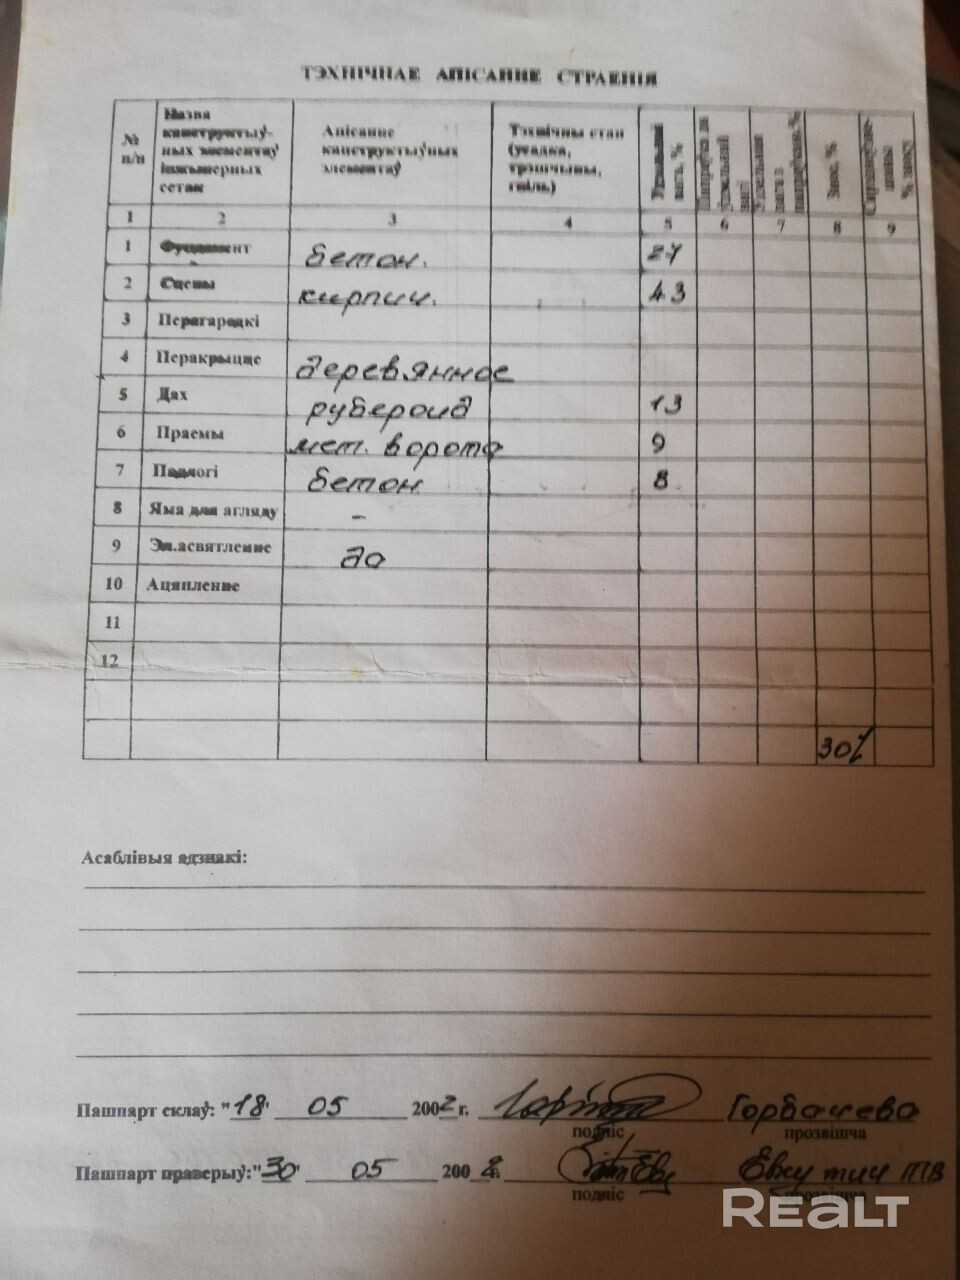 ТЭХНІЧНАЕ АПІСАННЕ СТРАЕННЯ
№ п/п
Назва канструктыў-ных элементаў інжынерных сетак
Апісанне канструктыўных элементаў
Тэхнічны стан (усадка, трэшчыны, гніль)
Удзельная вага, %
Знос, %
1 2 3 4 5 6 7 8 9
1 Фундамент бетон. 27
2 Сцены кирпич. 43
3 Перагародкі
4 Перакрыцце деревянное
5 Дах рубероид 13
6 Праемы мет. ворота 9
7 Падлогі бетон 8
8 Яма для агляду –
9 Эл.асвятленне да
10 Ацяпленне
11
12
30%
Асаблівыя адзнакі:
Пашпарт склаў: "18" 05 2002 г. Горбачева
подпіс прозвішча
Пашпарт праверыў: "30" 05 2002 г.
подпіс прозвішча
REALT